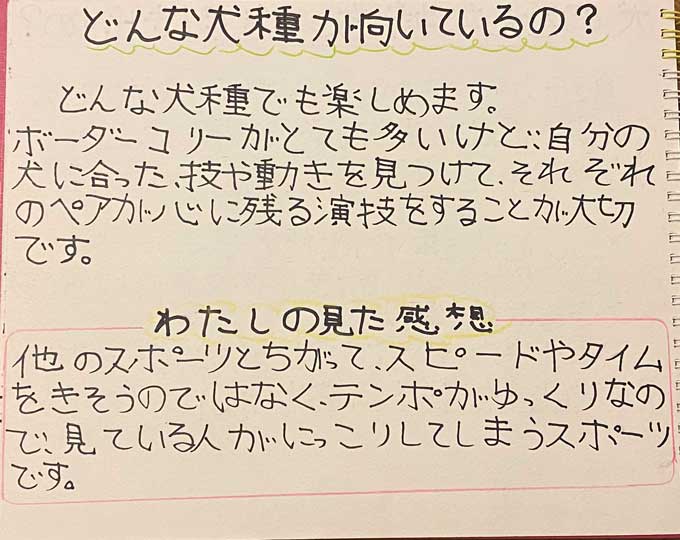 どんな犬種が向いているの？
どんな犬種でも楽しめます。
ボーダーコリーがとても多いけど、自分の
犬に合った、技や動きを見つけて、それぞれ
のペアが心に残る演技をすることが大切
です。
わたしの見た感想
他のスポーツとちがって、スピードやタイム
をきそうのではなく、テンポがゆっくりなの
で、見ている人がにっこりしてしまうスポーツ
です。